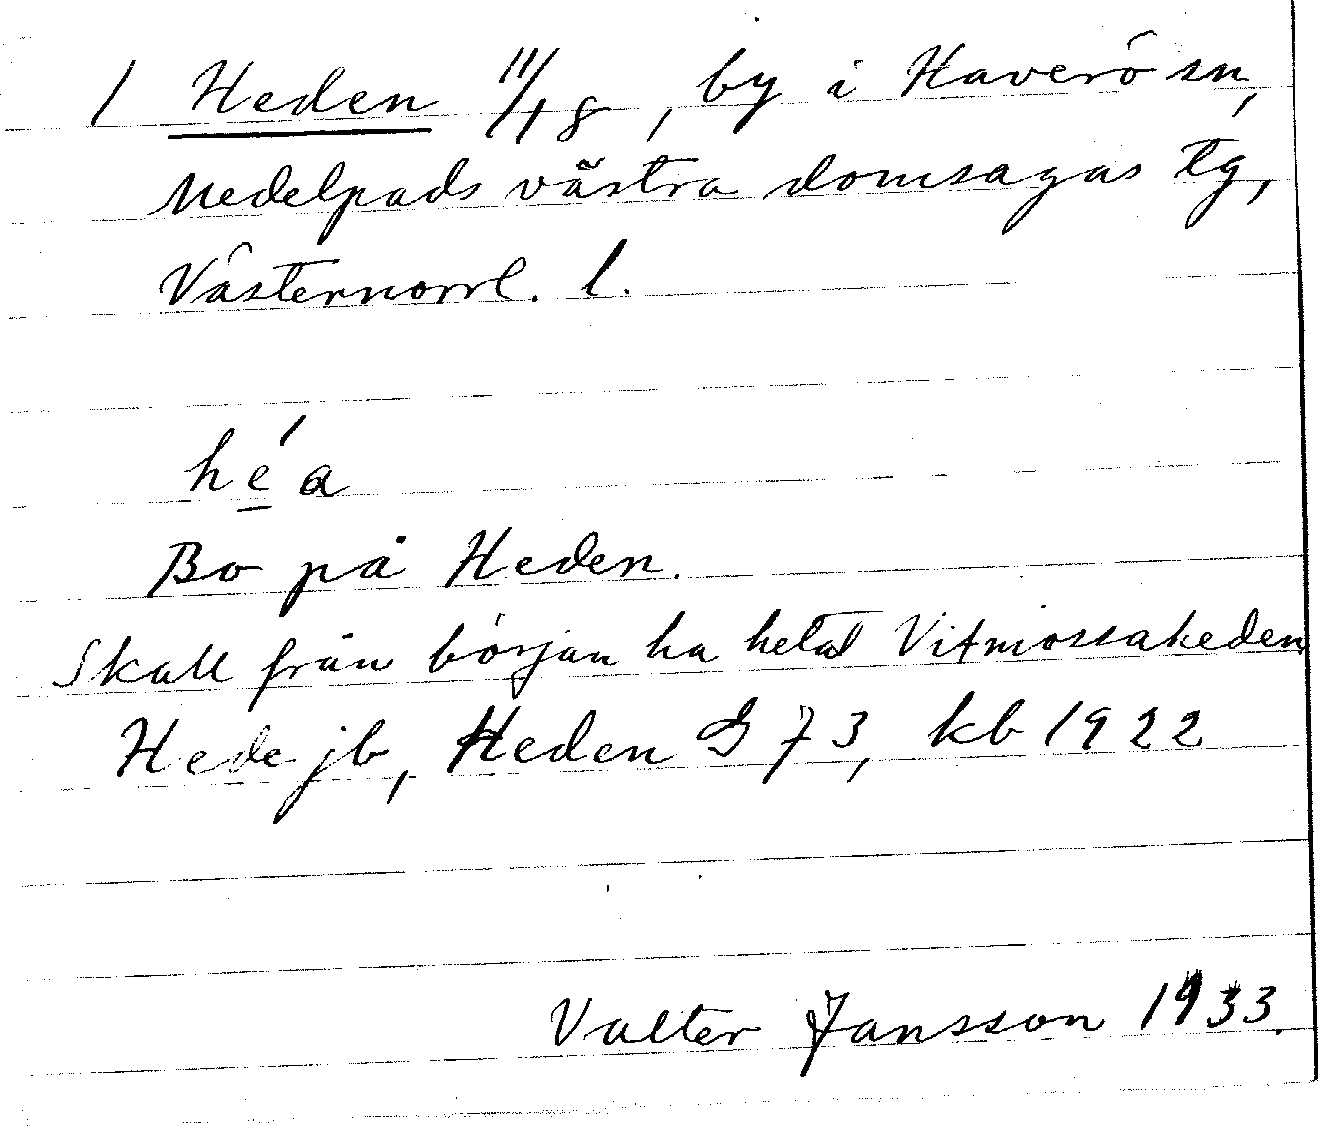 1 Heden 11/18, by i Haverö sn,
Medelpads västra domsagas tg,
Västernorrl. l.
héa
Bo på Heden.
Skall från början ha hetat Vitmossaheden
Hede jb, Heden G 73, kb 1922
Valter Jansson 1933.